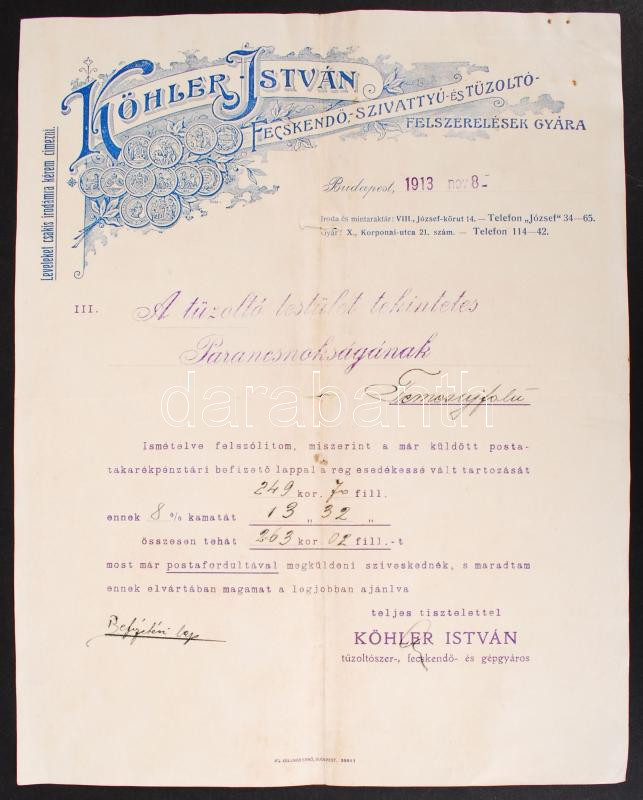 KÖHLER ISTVÁN
FECSKENDŐ,-SZIVATTYÚ-ÉS TŰZOLTÓ-
FELSZERELÉSEK GYÁRA
Leveleket csakis irodámra kérem címezni.
Budapest, 1913 nov 8-
Iroda és mintaraktár: VIII., József-körut 14. — Telefon „József" 34—65.
Gyár: X., Korponai-utca 21. szám. — Telefon 114—42.
III.
A tüzoltó testület tekintetes
Parancsnokságának
Temosujfalu
darabanth
Ismételve felszólitom, miszerint a már küldött posta-
takarékpénztári befizető lappal a rég esedékessé vált tartozását
249 kor. 70 fill.
ennek 8 % kamatát 13 „ 32 „
összesen tehát 263 kor 02 fill.-t
most már postafordultával megküldeni sziveskednék, s maradtam
ennek elvártában magamat a legjobban ajánlva
teljes tisztelettel
Befizetési lap
KÖHLER ISTVÁN
tűzoltószer-, fecskendő- és gépgyáros
BUDAPEST,